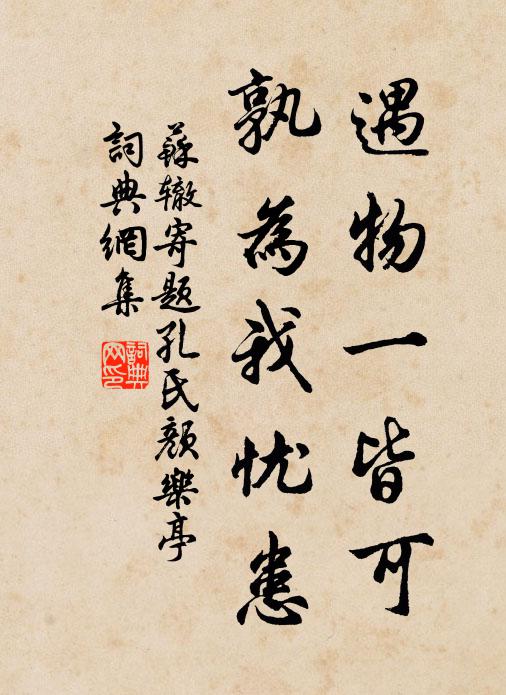 遇物一皆可
孰為我忧患
蘇辙寄题孔氏顏樂亭
詞典網集
詞典网印